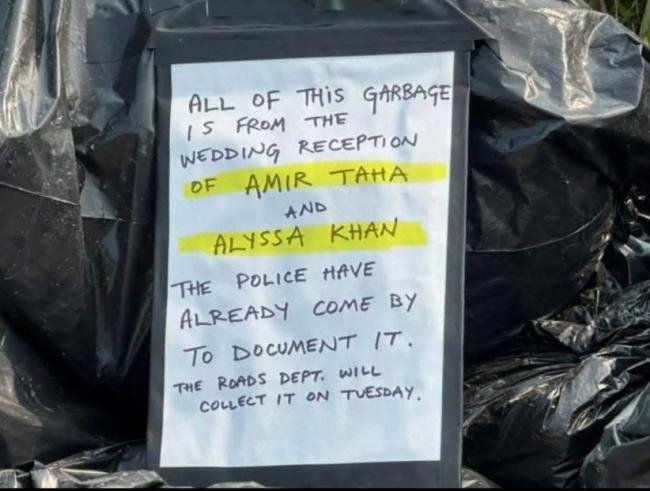 ALL OF THIS GARBAGE
IS FROM THE
WEDDING RECEPTION
OF AMIR TAHA
AND
ALYSSA KHAN
THE POLICE HAVE
ALREADY COME BY
TO DOCUMENT IT.
THE ROADS DEPT. WILL
COLLECT IT ON TUESDAY.